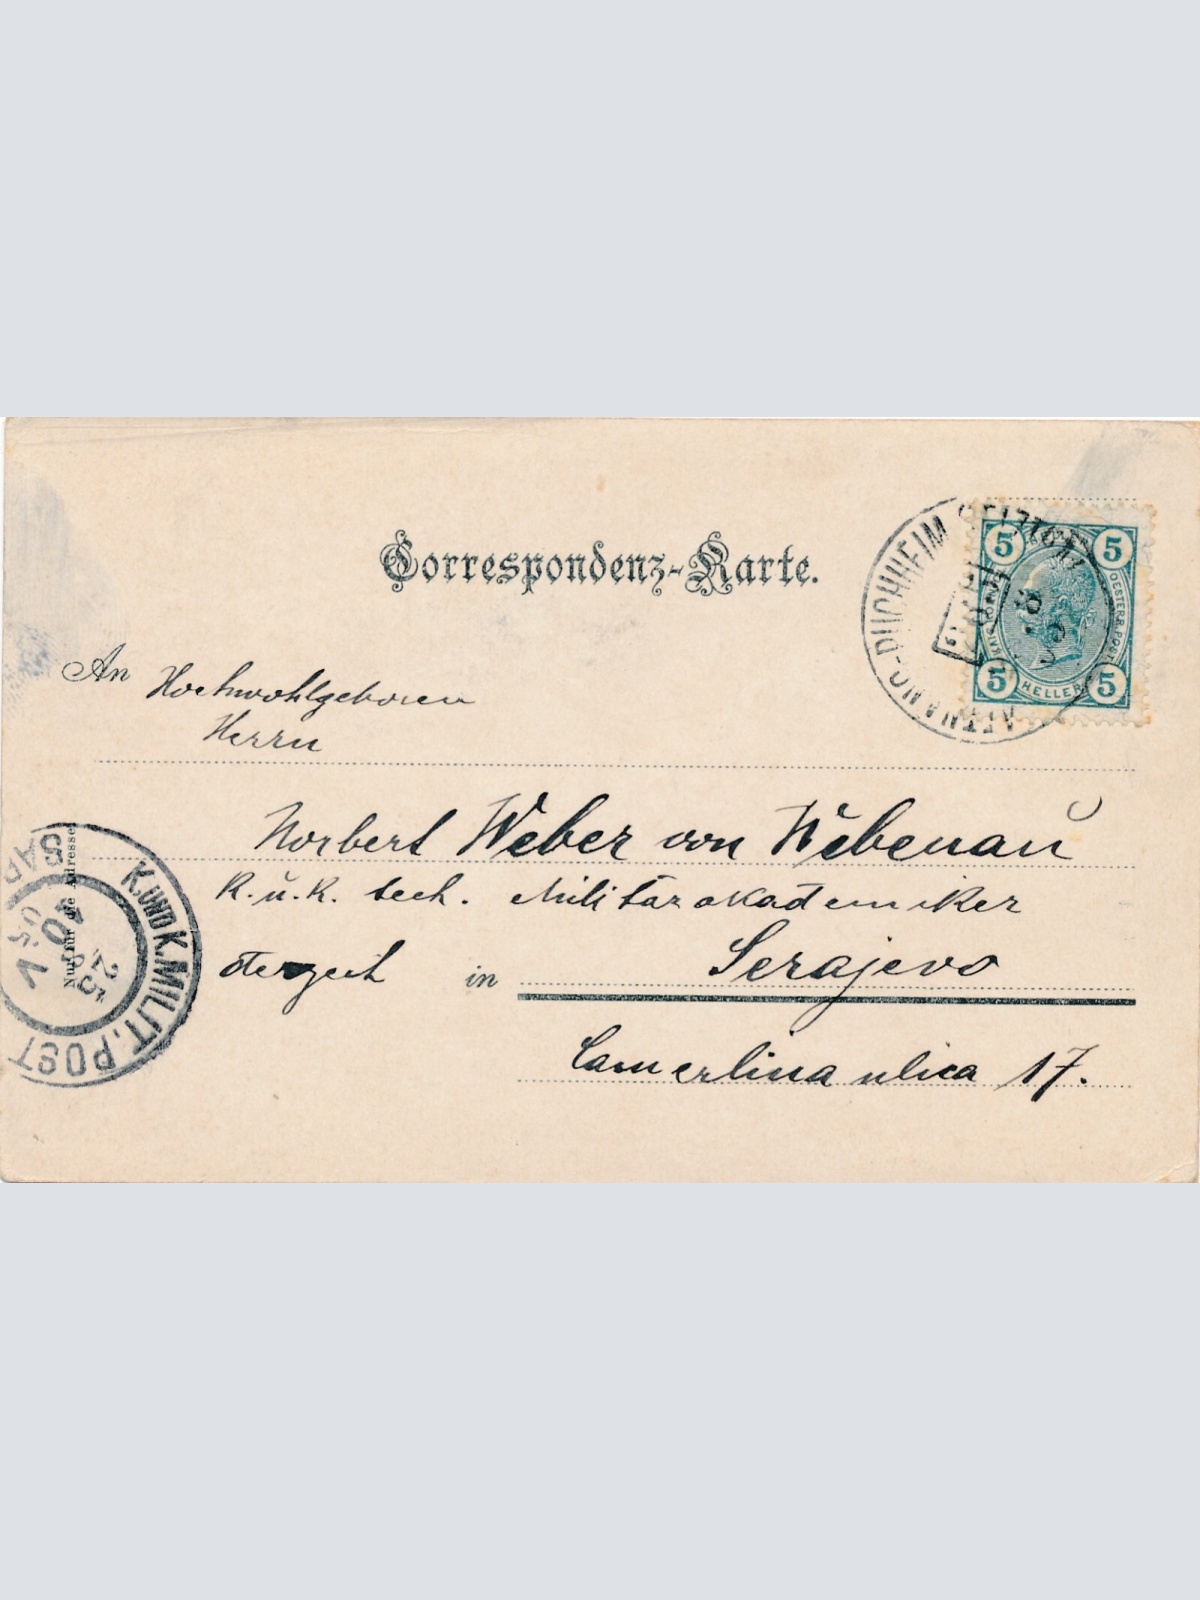 Correspondenz-Karte.
An Hochwohlgeboren
Herrn
Norbert Weber von Wěbenaŭ
K. ŭ. K. tech. Militärakademiker
derzeit in Serajevo
Camerlina ulica 17.
Nur für die Adresse
5 5
KAIS. KÖNIGL. OESTERR. POST
5 HELLER 5
ATTNANG-PUCHHEIM
K. UND K. MILIT. POST
SAR
25
05
V